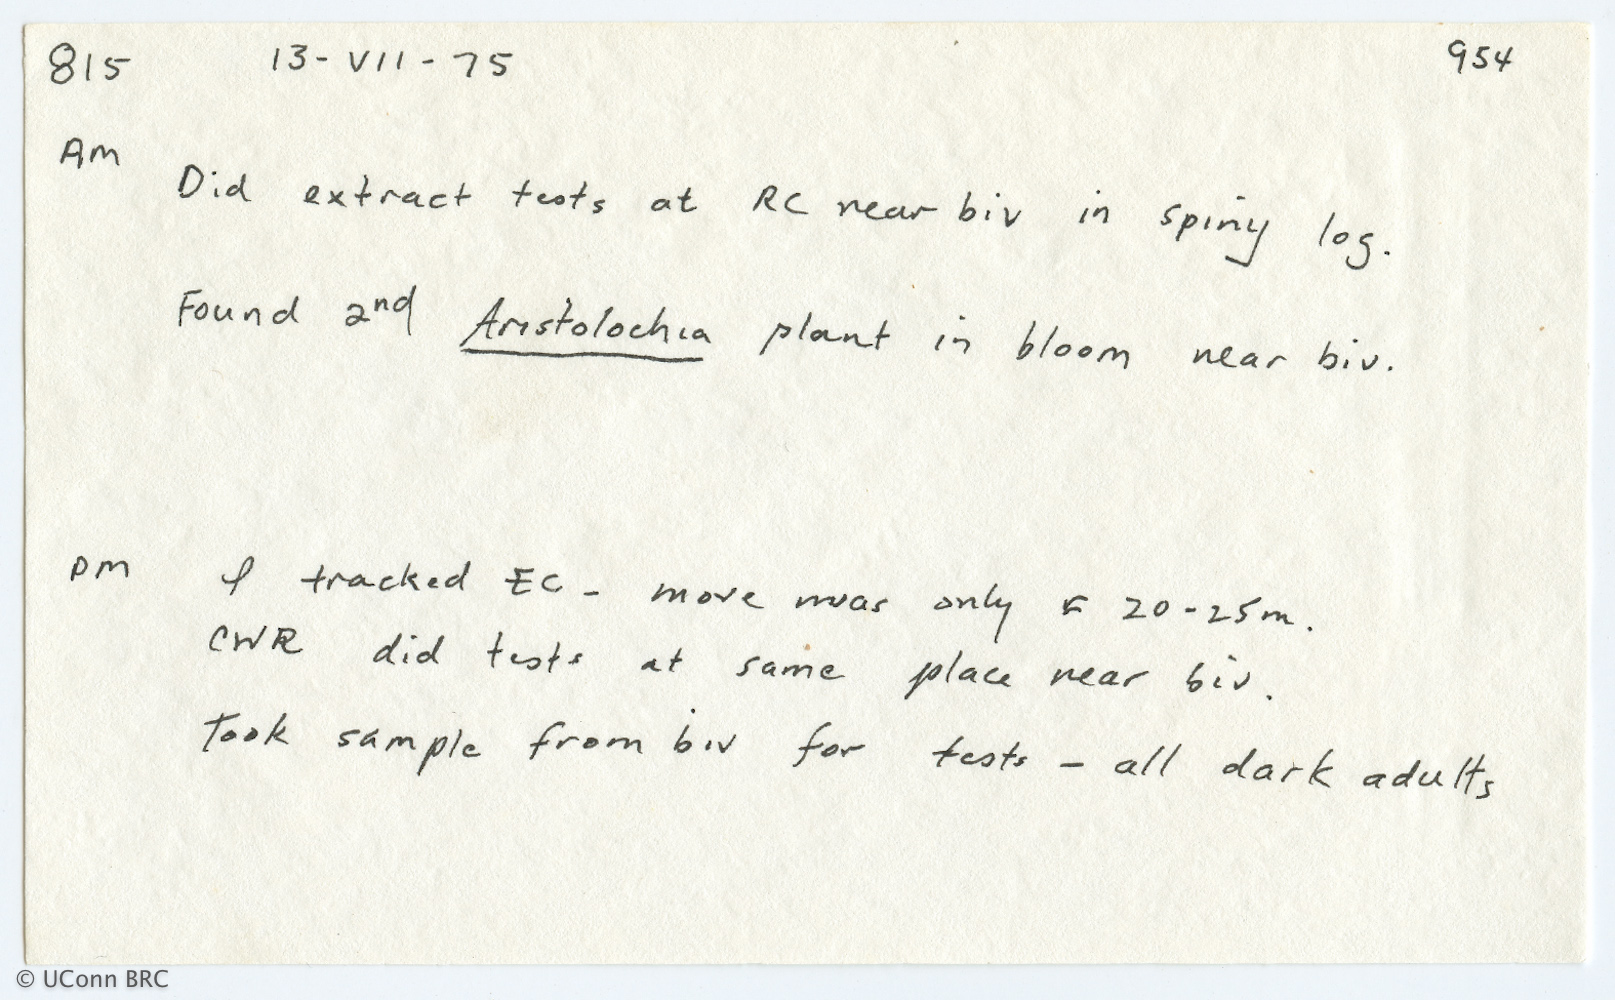 815 13-VII-75 954
AM Did extract tests at RC near biv in spiny log.
Found 2nd Aristolochia plant in bloom near biv.
PM I tracked EC - move was only 20-25m.
CWR did tests at same place near biv.
Took sample from biv for tests - all dark adults
© UConn BRC